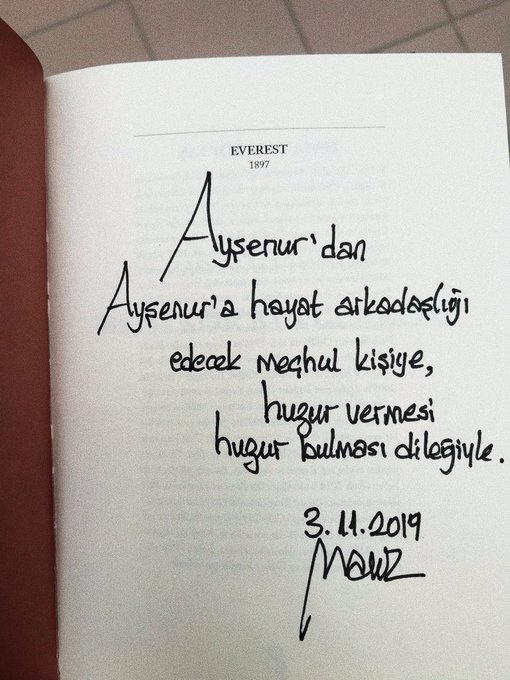 EVEREST
1897
Ayşenur'dan
Ayşenur'a hayat arkadaşlığı
edecek meçhul kişiye,
huzur vermesi
huzur bulması dileğiyle.
3.11.2019